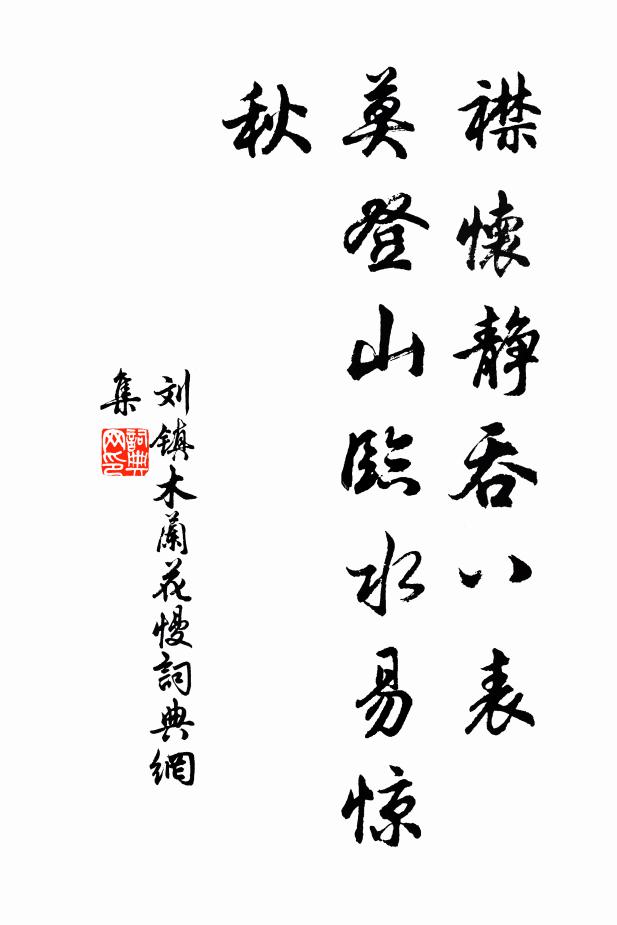 襟懷靜吞八表
莫登山臨水易惊
秋
刘镇木蘭花慢詞典網
集
詞典
网印